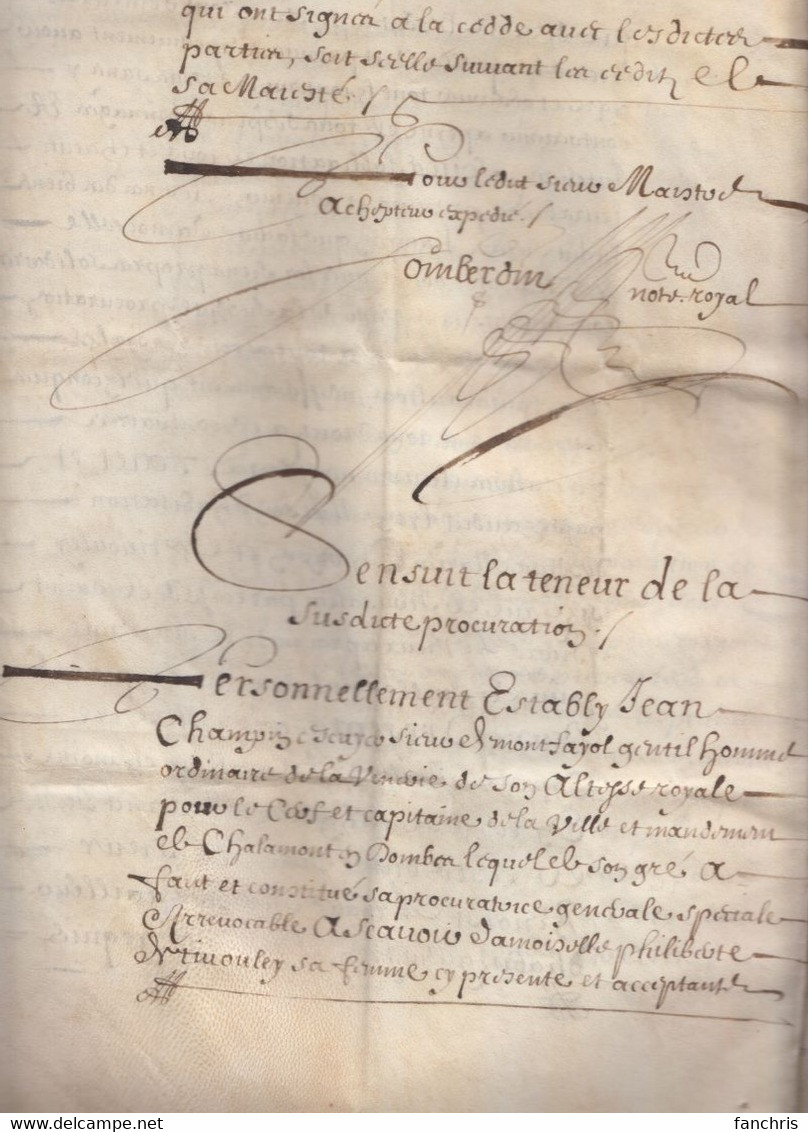 qui ont signéz a la cedde avec lesdictes
parties, soit scellé suivant les editz de
sa Maiesté
Pour ledit sieur Maistod
achepteur expedié
Comberdin
note. royal
Sensuit la teneur de la
susdicte procuration
Personnellement Estably Jean
Champin escuyer sieur de montfayol gentilhomme
ordinaire de la Venerie de son Altesse royale
pour le Cerf et capitaine de la Ville et mandement
de Chalamont en Dombes lequel de son gré a
faict et constitué sa procuratrice generale speciale
et irrevocable Ascavoir damoiselle philiberte
de sa femme cy presente et acceptante
fanchris